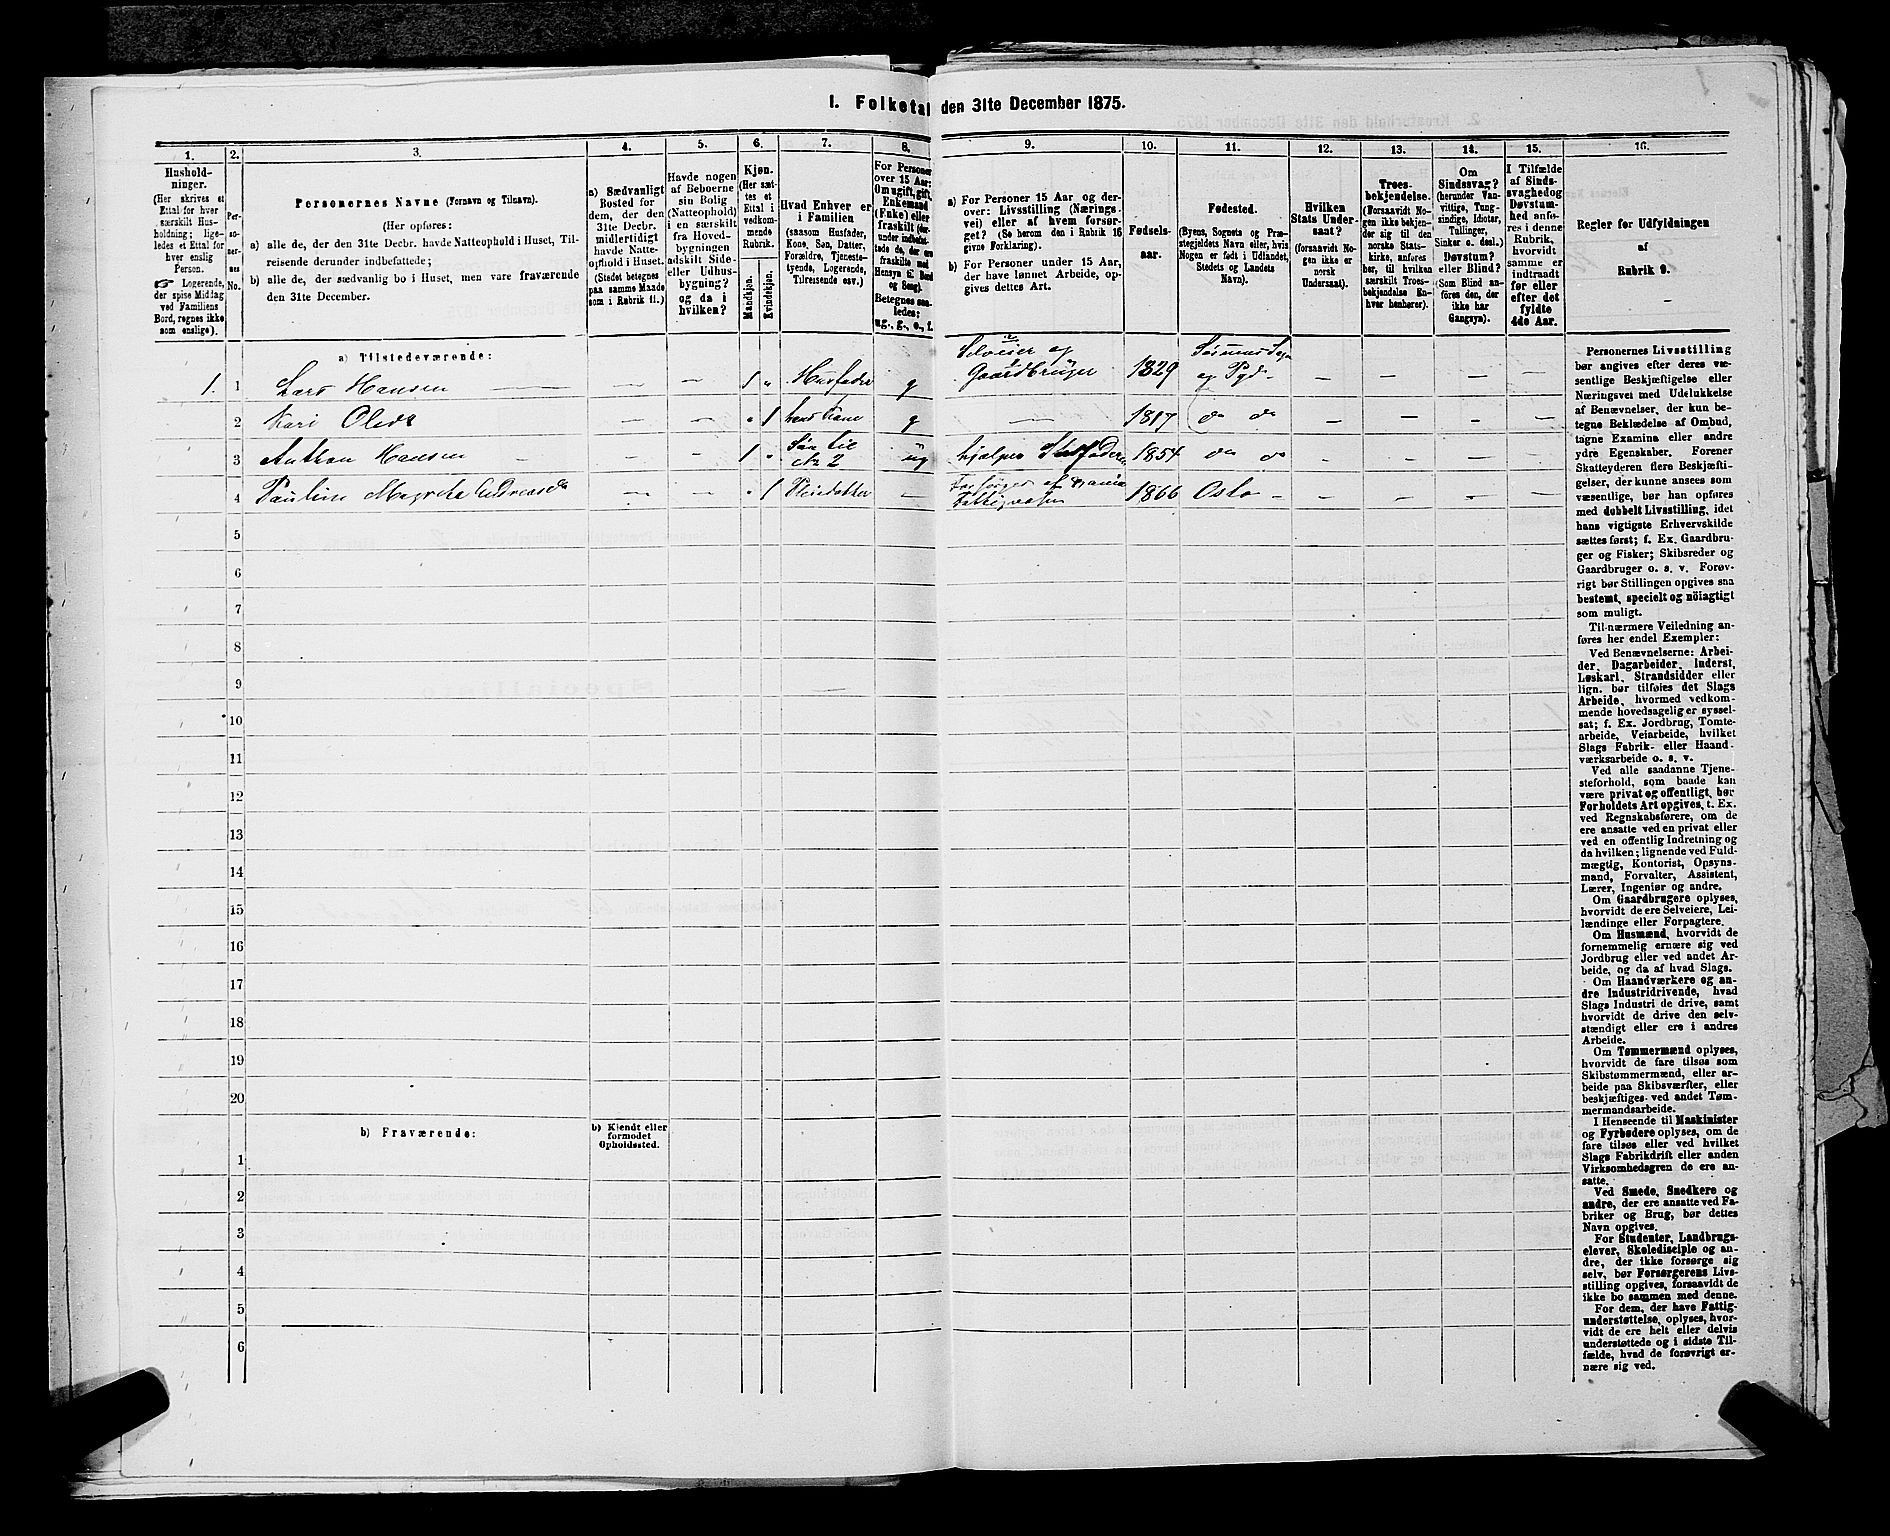 I. Folketal den 31te December 1875.
1.
2.
3.
4.
5.
6.
7.
8.
9.
10.
11.
12.
13.
14.
15.
16.
Hushold-
ninger.
(Her skrives et
Ettal for hver
særskilt Hus-
holdning; lige-
ledes et Ettal for
hver enslig
Person.
☞ Logerende,
der spise Middag
ved Familiens
Bord, regnes ikke
som enslige).
Per-
so-
ner-
nes
No.
Personernes Navne (Fornavn og Tilnavn).
(Her opføres:
a) alle de, der den 31te Decbr. havde Natteophold i Huset, Til-
reisende derunder indbefattede;
b) alle de, der sædvanlig bo i Huset, men vare fraværende
den 31te December.
a) Sædvanligt
Bosted for
dem, der den
31te Decbr.
midlertidigt
havde Natte-
ophold i Huset.
(Stedet betegnes
paa samme Maade
som i Rubrik 11.)
Havde nogen
af Beboerne
sin Bolig
(Natteophold)
i en særskilt
fra Hoved-
bygningen
adskilt Side-
eller Udhus-
bygning?
og da i
hvilken?
Kjøn.
(Her sæt-
tes et
Ettal i
vedkom-
mende
Rubrik.
Mandkjøn.
Kvindekjøn.
Hvad Enhver er
i Familien
(saasom Husfader,
Kone, Søn, Datter,
Forældre, Tjeneste-
tyende, Logerende,
Tilreisende osv.)
For Personer
over 15 Aar:
Om ugift, gift,
Enkemand
(Enke) eller
fraskilt
Betegnes saa-
ledes:
ug., g., e., f.
a) For Personer 15 Aar og der-
over: Livsstilling (Nærings-
vei) eller af hvem forsør-
get? (Se herom den i Rubrik 16
givne Forklaring).
b) For Personer under 15 Aar,
der have lønnet Arbeide, op-
gives dettes Art.
Fødsels-
aar.
Fødested.
(Byens, Sognets og Præ-
stegjeldets Navn eller, hvis
Nogen er født i Udlandet,
Stedets og Landets
Navn).
Hvilken
Stats Under-
saat?
(forsaavidt No-
gen ikke er
norsk
Undersaat).
Troes-
bekjendelse.
(Forsaavidt No-
gen ikke bekjen-
der sig til den
norske Stats-
kirke, anføres
her, til hvilken
særskilt Troes-
bekjendelse En-
hver henhører).
Om
Sindssvag?
(herunder Van-
vittige, Tung-
sindige, Idioter,
Tullinger,
Sinker o. desl.)
Døvstum?
eller Blind?
(Som Blind an-
føres den, der
ikke har
Gangsyn).
I Tilfælde
af Sinds-
svaghed og
Døvstum-
hed anfø-
res i denne
Rubrik,
hvorvidt
samme er
indtraadt
før eller
efter det
fyldte
4de Aar.
Regler for Udfyldningen
af
Rubrik 9.
a) Tilstedeværende:
1. 1 Lars Hansen — — — 1 „ Husfader g Selveier og Gaardbruger 1829 og Pgd. — — — —
2 Kari Olsdt — — „ 1 Kone g — 1817 do do — — — —
3 Anthon Hansen — — 1 „ Søn til No 2 ug hjælper Husfaderen 1854 do do — — — —
4 Pauline — — „ 1 Pleiedatter — Forsørges af Fattigvæsen 1866 Oslo — — — — —
5
6
7
8
9
10
11
12
13
14
15
16
17
18
19
20
b) Fraværende:
b) Kjendt eller
formodet
Opholdssted.
1
2
3
4
5
6
Personernes Livsstilling
bør angives efter deres væ-
sentlige Beskjæftigelse eller
Næringsvei med Udelukkelse
af Benævnelser, der kun be-
tegne Beklædelse af Ombud,
tagne Examina eller andre
ydre Egenskaber. Forener
Skatteyderen flere Beskjæfti-
gelser, der kunne ansees som
væsentlige, bør han opføres
med dobbelt Livsstilling, idet
hans vigtigste Erhvervskilde
sættes først; f. Ex. Gaardbru-
ger og Fisker; Skibsreder og
Gaardbruger o. s. v. Forøv-
rigt bør Stillingen opgives saa
bestemt, specielt og nöiagtigt
som muligt.
Til nærmere Veiledning an-
føres her endel Exempler:
Ved Benævnelserne: Arbei-
der, Dagarbeider, Inderst,
Løskarl, Strandsidder eller
lign. bør tilføies det Slags
Arbeide, hvormed vedkom-
mende hovedsagelig er syssel-
sat; f. Ex. Jordbrug, Tomte-
arbeide, Veiarbeide, hvilket
Slags Fabrik- eller Haand-
værksarbeide o. s. v.
Ved alle saadanne Tjene-
steforhold, som baade kan
være privat og offentligt, bør
Forholdets Art opgives, t. Ex.
ved Regnskabsførere, om de
ere ansatte ved en privat eller
ved en offentlig Indretning og
da hvilken; lignende ved Fuld-
mægtig, Kontorist, Opsyns-
mand, Forvalter, Assistent,
Lærer, Ingeniør og andre.
Om Gaardbrugere oplyses,
hvorvidt de ere Selveiere, Lei-
lændinge eller Forpagtere.
Om Husmænd, hvorvidt de
fornemmelig ernære sig ved
Jordbrug eller ved andet Ar-
beide, og da af hvad Slags.
Om Haandværkere og an-
dre Industridrivende, hvad
Slags Industri de drive, samt
hvorvidt de drive den selv-
stændigt eller ere i andres
Arbeide.
Om Tømmermænd oplyses,
hvorvidt de fare tilsøs som
Skibstømmermænd, eller ar-
beide paa Skibsværfter, eller
beskjæftiges ved andet Tøm-
mermandsarbeide.
I Henseende til Maskinister
og Fyrbødere oplyses, om de
fare tilsøs eller ved hvilket
Slags Fabrikdrift eller anden
Virksomhedsgren de ere an-
satte.
Ved Smede, Snedkere og
andre, der ere ansatte ved Fa-
briker og Brug, bør dettes
Navn opgives.
For Studenter, Landbrugs-
elever, Skoledisciple og an-
dre, der ikke forsørge sig
selv, bør Forsørgerens Livs-
stilling opgives, forsaavidt de
ikke bo sammen med denne.
For dem, der have Fattig-
understøttelse, oplyses, hvor-
vidt de ere helt eller delvis
understøttede og i sidste Til-
fælde, hvad de forøvrigt er-
nære sig ved.